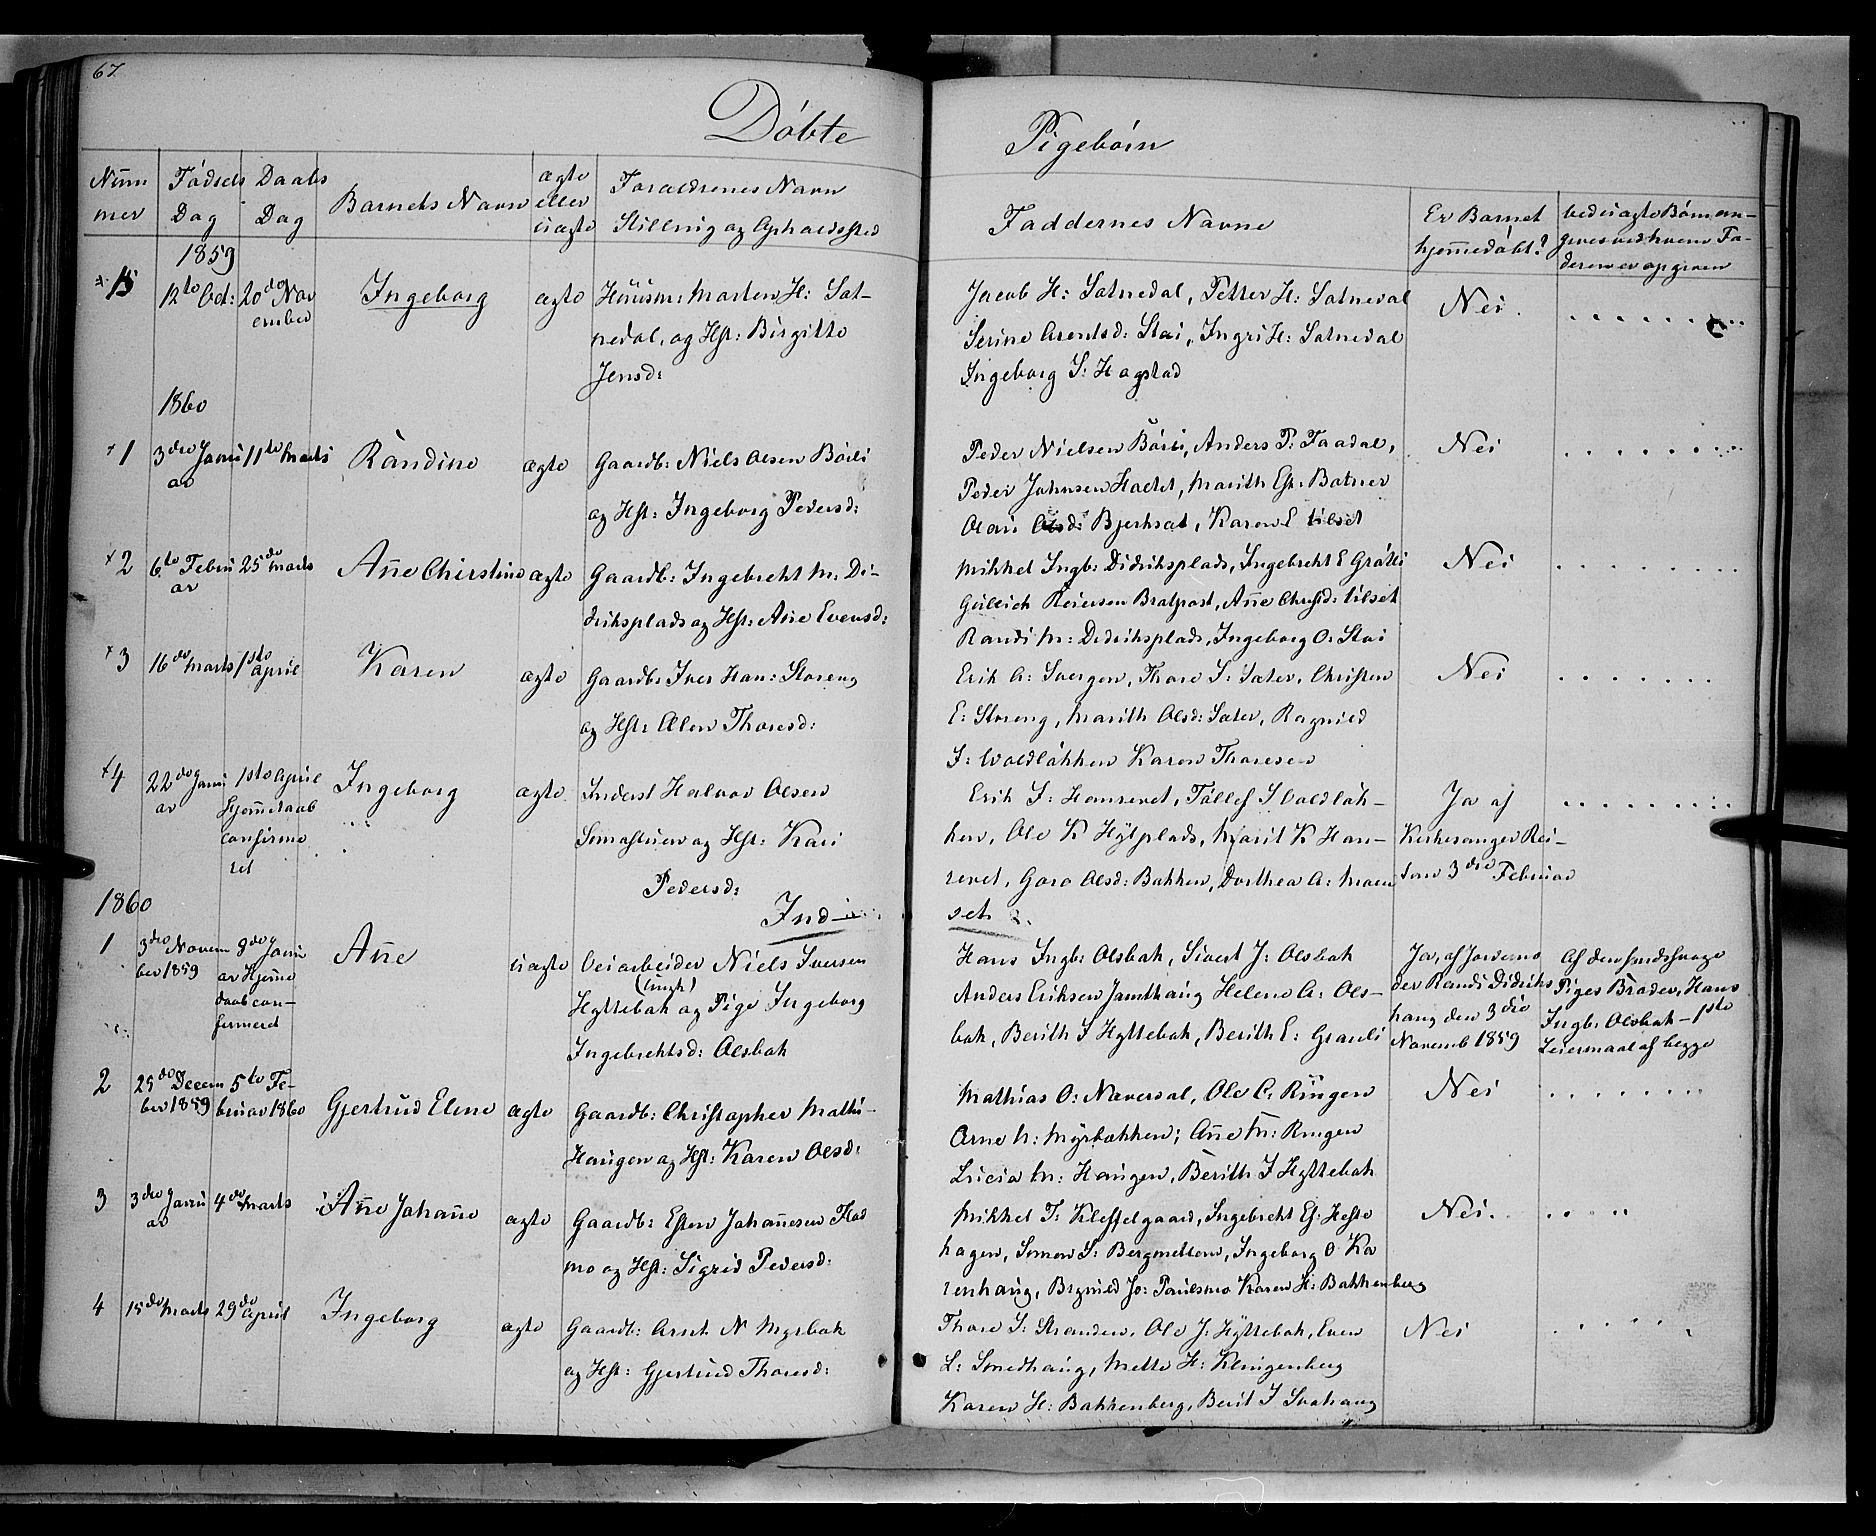 67
Döbte Pigebörn
Num
mer
Födsels
Dag
Daabs
Dag
Barnets Navn
ægte
eller
uægte
Forældrenes Navn
Stilling og Opholdssted
Faddernes Navne
Er Barnet
hjemmedöbt?
ved uægte Börn an-
gives ved hvem Fa-
deren er opgiven
1859
15
12te Oct:
20de Nov
ember
Ingeborg
ægte
Huusm: Morten H: Sat-
nedal, og Hst: Birgitte
Jensd:
Jacob H: Satnedal, Petter H: Satnedal
Serine Arentsd: Stai, Ingri H: Satnedal
Ingeborg S: Hagstad
Nei.
1860
1
3die Janu
ar
11te Marts
Randine
ægte
Gaardb: Niels Olsen Börli
og Hst: Ingeborg Pedersd:
Peder Nielsen Börli, Anders P: Faadal,
Peder Johnsen Hacht, Marith Est: Batner
Olari Olsd: Bjerksæt, Karen E tilset
Nei
2
6te Febru
ar
25de Marts
Aññe Christine
ægte
Gaardb: Ingebreht M: Di-
driksplads og Hst: Ane Evensd:
Mikkel Ingb: Didriksplads, Ingebreht E Grötli
Gullich Reiersen Bratfost, Aññe Christd: tilset
Randi M: Didriksplads, Ingeborg O: Stai
Nei
3
16de Marts
1ste April
Karen
ægte
Gaardb: Iver Han: Storeng
og Hst: Olen Thoresd:
Erik A: Svergen, Thore S: Sæter, Christen
E: Storeng, Marith Olsd: Sæter, Ragnild
S: Voldlökken Karen Thoresen
Nei
4
22de Janu
ar
1ste April
Hjemmedaab
confirme
ret
Ingeborg
ægte
Inderst Halvor Olsen
Simastuen og Hst: Kari
Pedersd:
Erik S: Hanrevet, Tollef S Voldlök-
ken, Ole K Hylplads, Marit K Han-
revet, Goro Olsd: Bakken, Dorthea A: Moen
set
Ja af
Kirkesanger Rei-
tan 3die Februar
1860
Ind
1
3die Novem
ber 1859
9de Janu
ar Hjemme
daab con-
firmeret
Aññe
uægte
Veiarbeider Niels Iversen
Hyttebak (ungk) og Pige Ingeborg
Ingebrehtsd: Olsbak
Hans Ingb: Olsbak, Sivert J: Olsbak
Anders Eriksen Jamthaug Helene A: Ols-
bak, Berith I Hyttebak, Berith E: Grauli
Ja, af Jordemo
der Randi Didriks
haug den 3die
Novemb 1859
Af den
Piges Broder, Hans
Ingb: Olsbak - 1ste
Leiermaal af begge
2
25de Decem
ber 1859
5te Fe-
bruar 1860
Gjertrud Eline
ægte
Gaardb: Christopher Math:
Haugen og Hst: Karen Olsd:
Mathias O: Næverdal, Ole C. Ringen
Arne N: Myrbækken; Aññe M: Ringen
Lucia M: Haugen, Berith I Hyttebak
Nei
3
3die Janu
ar
4de Marts
Aññe Johaññe
ægte
Gaardb: Esten Johaññesen Flad
mo og Hst: Sigrid Pedersd:
Mikkel T: Kleffelgaard, Ingebreht Es: Heste
hagen, Simen S: Bergmellem, Ingeborg O Ka
renhaug, Brynild Jo: Paulsmo Karen H: Bakkenberg
Nei.
4
15de Marts
29de April
Ingeborg
ægte
Gaardb: Arnt N Myrbak
og Hst: Gjertrud Thoresd:
Thore S: Stranden, Ole J: Hyttebak, Even
L: Smedhaug, Mette H: Klingenberg
Karen H: Bakkenberg, Berit I Svahaug
Nei